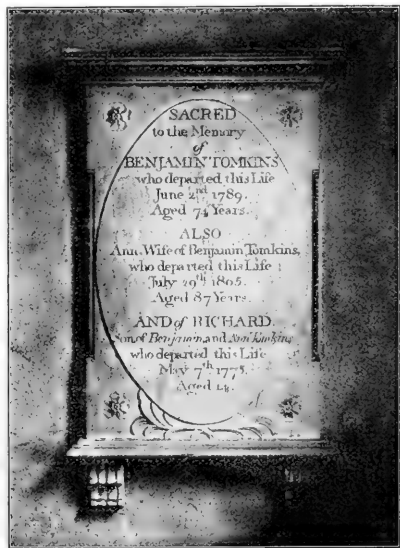 SACRED
to the Memory
of
BENJAMIN TOMKINS
who departed this Life
June 2nd 1789.
Aged 74 Years.
ALSO
Ann, Wife of Benjamin Tomkins,
who departed this Life
July 29th 1805.
Aged 87 Years.
AND of RICHARD.
Son of Benjamin, and Ann Tomkins
who departed this Life
May 7th 1775.
Aged